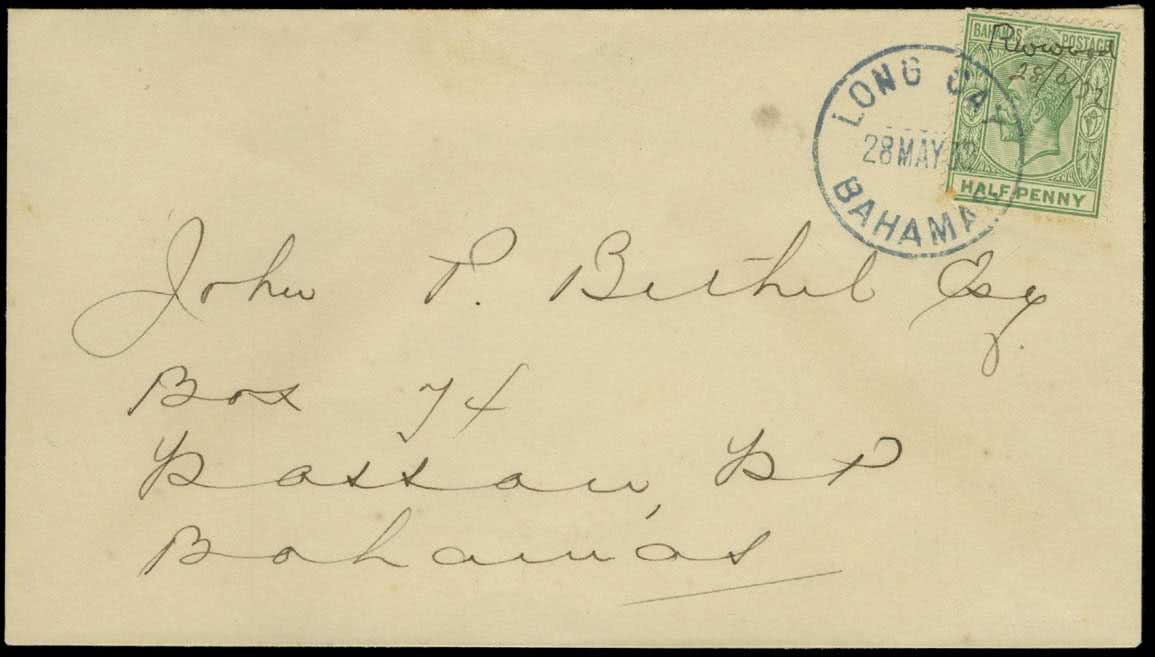 BAHAMAS POSTAGE
28/5/32
LONG CAY
28 MAY 32
BAHAMAS
HALF PENNY
John P. Bethel Esq.
Box 74
Nassau, N P
Bahamas